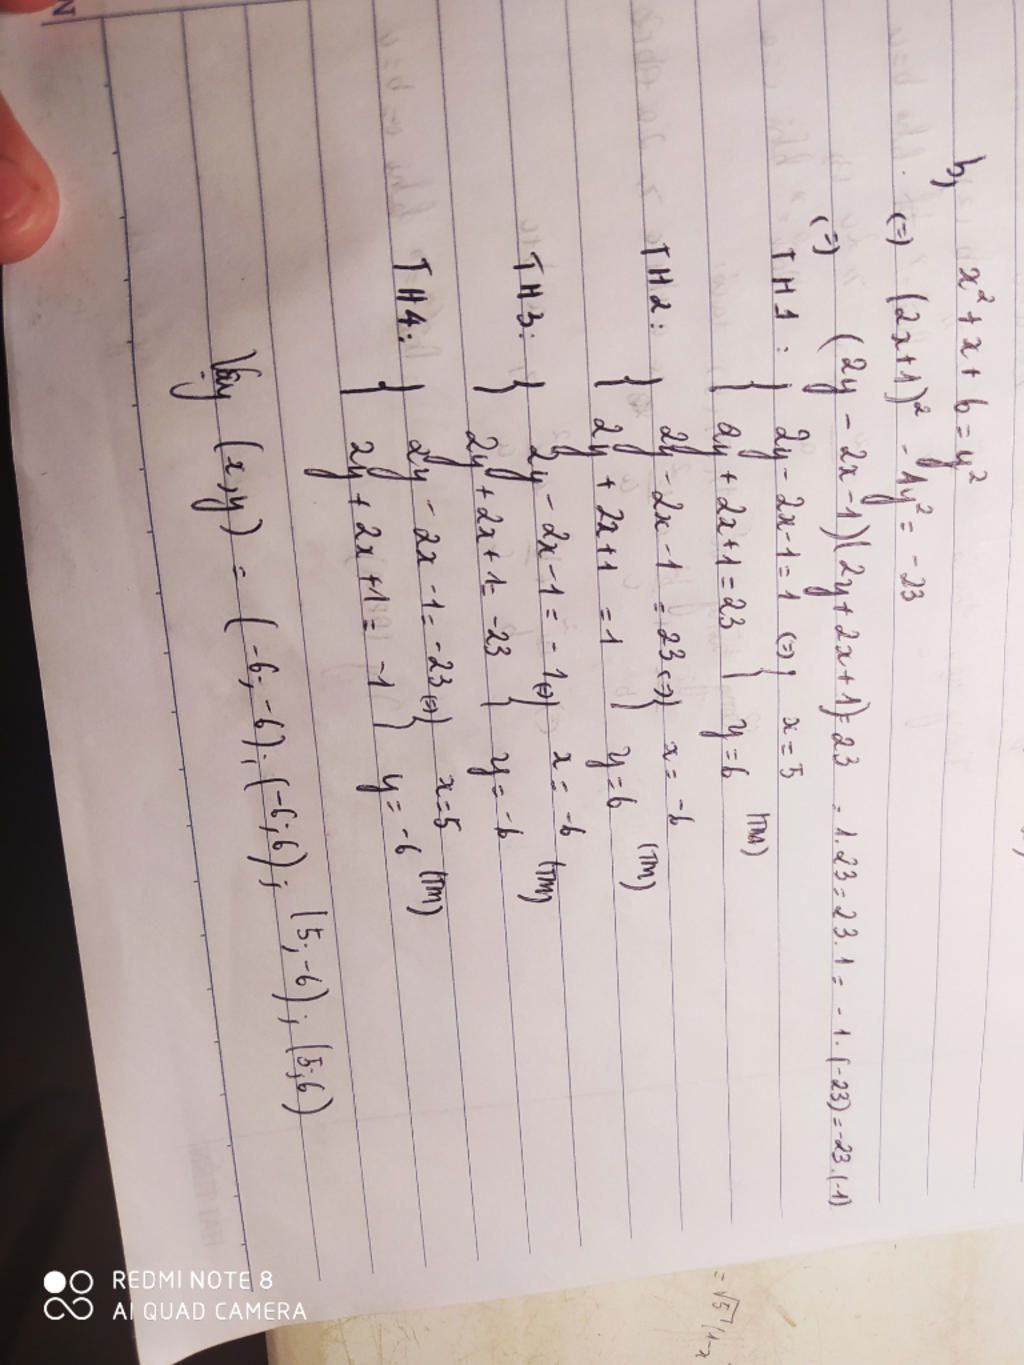 b, x² + x + 6 = y²
(=) (2x+1)² - 4y² = -23
(=) (2y - 2x - 1)(2y + 2x + 1) = 23 = 1.23 = 23.1 = -1.(-23) = -23.(-1)
TH1 : { 2y - 2x - 1 = 1 (=) { x = 5
2y + 2x + 1 = 23 y = 6 (TM)
TH2 : { 2y - 2x - 1 = 23 (=) { x = -6
2y + 2x + 1 = 1 y = 6 (TM)
TH3 : { 2y - 2x - 1 = -1 (=) { x = -6
2y + 2x + 1 = -23 y = -6 (TM)
TH4 : { 2y - 2x - 1 = -23 (=) { x = 5
2y + 2x + 1 = -1 y = -6 (TM)
Vậy (x,y) = (-6;-6); (-6;6); (5;-6); (5;6)
REDMI NOTE 8
AI QUAD CAMERA